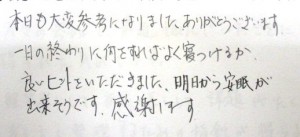 本日も大変参考になりました、ありがとうございます
一日の終わりに何をすればよく寝つけるか
良いヒントをいただきました、明日から安眠が
出来そうです、感謝します